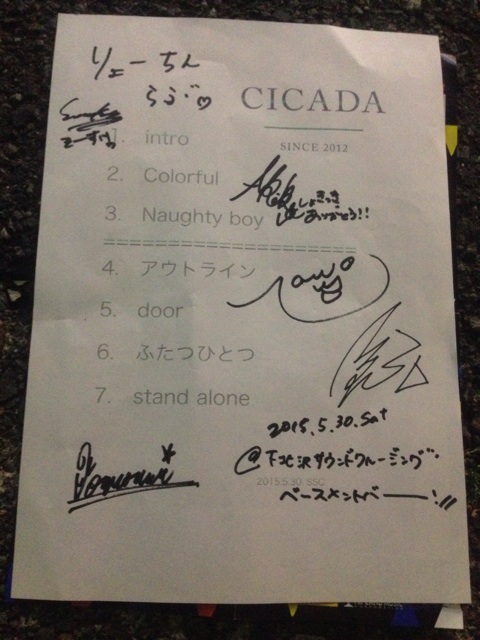 りょーちん
らぶ♡
CICADA
SINCE 2012
1. intro
2. Colorful
3. Naughty boy
ありがとう!!
====================
4. アウトライン
5. door
6. ふたつひとつ
7. stand alone
2015.5.30.Sat
@下北沢サウンドクルージング
2015.5.30 SSC
ベースメントバー!!